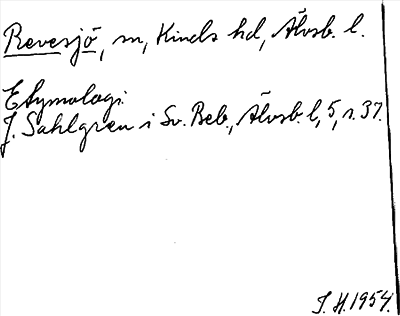 Revesjö, sn, Kinds hd, Älvsb. l.
Etymologi.
J. Sahlgren i Sv. Beb., Älvsb. l, 5, s. 37.
J. H. 1954.